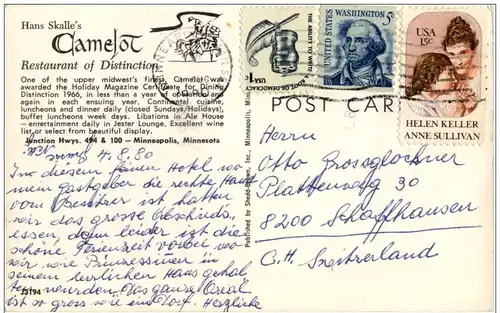 Hans Skalle's
Camelot
Restaurant of Distinction
One of the upper midwest's finest, Camelot was
awarded the Holiday Magazine Certificate for Dining
Distinction 1966, in less than a year of operation and
again in each ensuing year. Continental cuisine,
luncheons and dinner daily (closed Sundays/Holidays),
buffet luncheons week days. Libations in Ale House
— entertainment daily in Jester Lounge. Excellent wine
list, or select from beautiful display.
Junction Hwys. 494 & 100 — Minneapolis, Minnesota
4.8.80
In diesem feinen Hotel wo
mein Gastgeber die rechte Hand
vom Besitzer ist hatten
wir das grosse Abschieds,
essen, denn leider ist die
schöne Ferienzeit vorbei wo
wir wie Prinzessinnen in
seinem herrlichen Haus gehal
ten wurden Das ganze Areal
ist so gross wie ein Dorf. Herzliche
J3194
Published by Shedd-Brown, Inc., Minneapolis, Minn.
THE ABILITY TO WRITE
A ROOT OF DEMOCRACY
USA 1c
WASHINGTON 5c
UNITED STATES
USA
15c
HELEN KELLER
ANNE SULLIVAN
POST CAR
Herrn
Otto Grossglockner
Plattenweg 30
8200 Schaffhausen
C.H. Switzerland